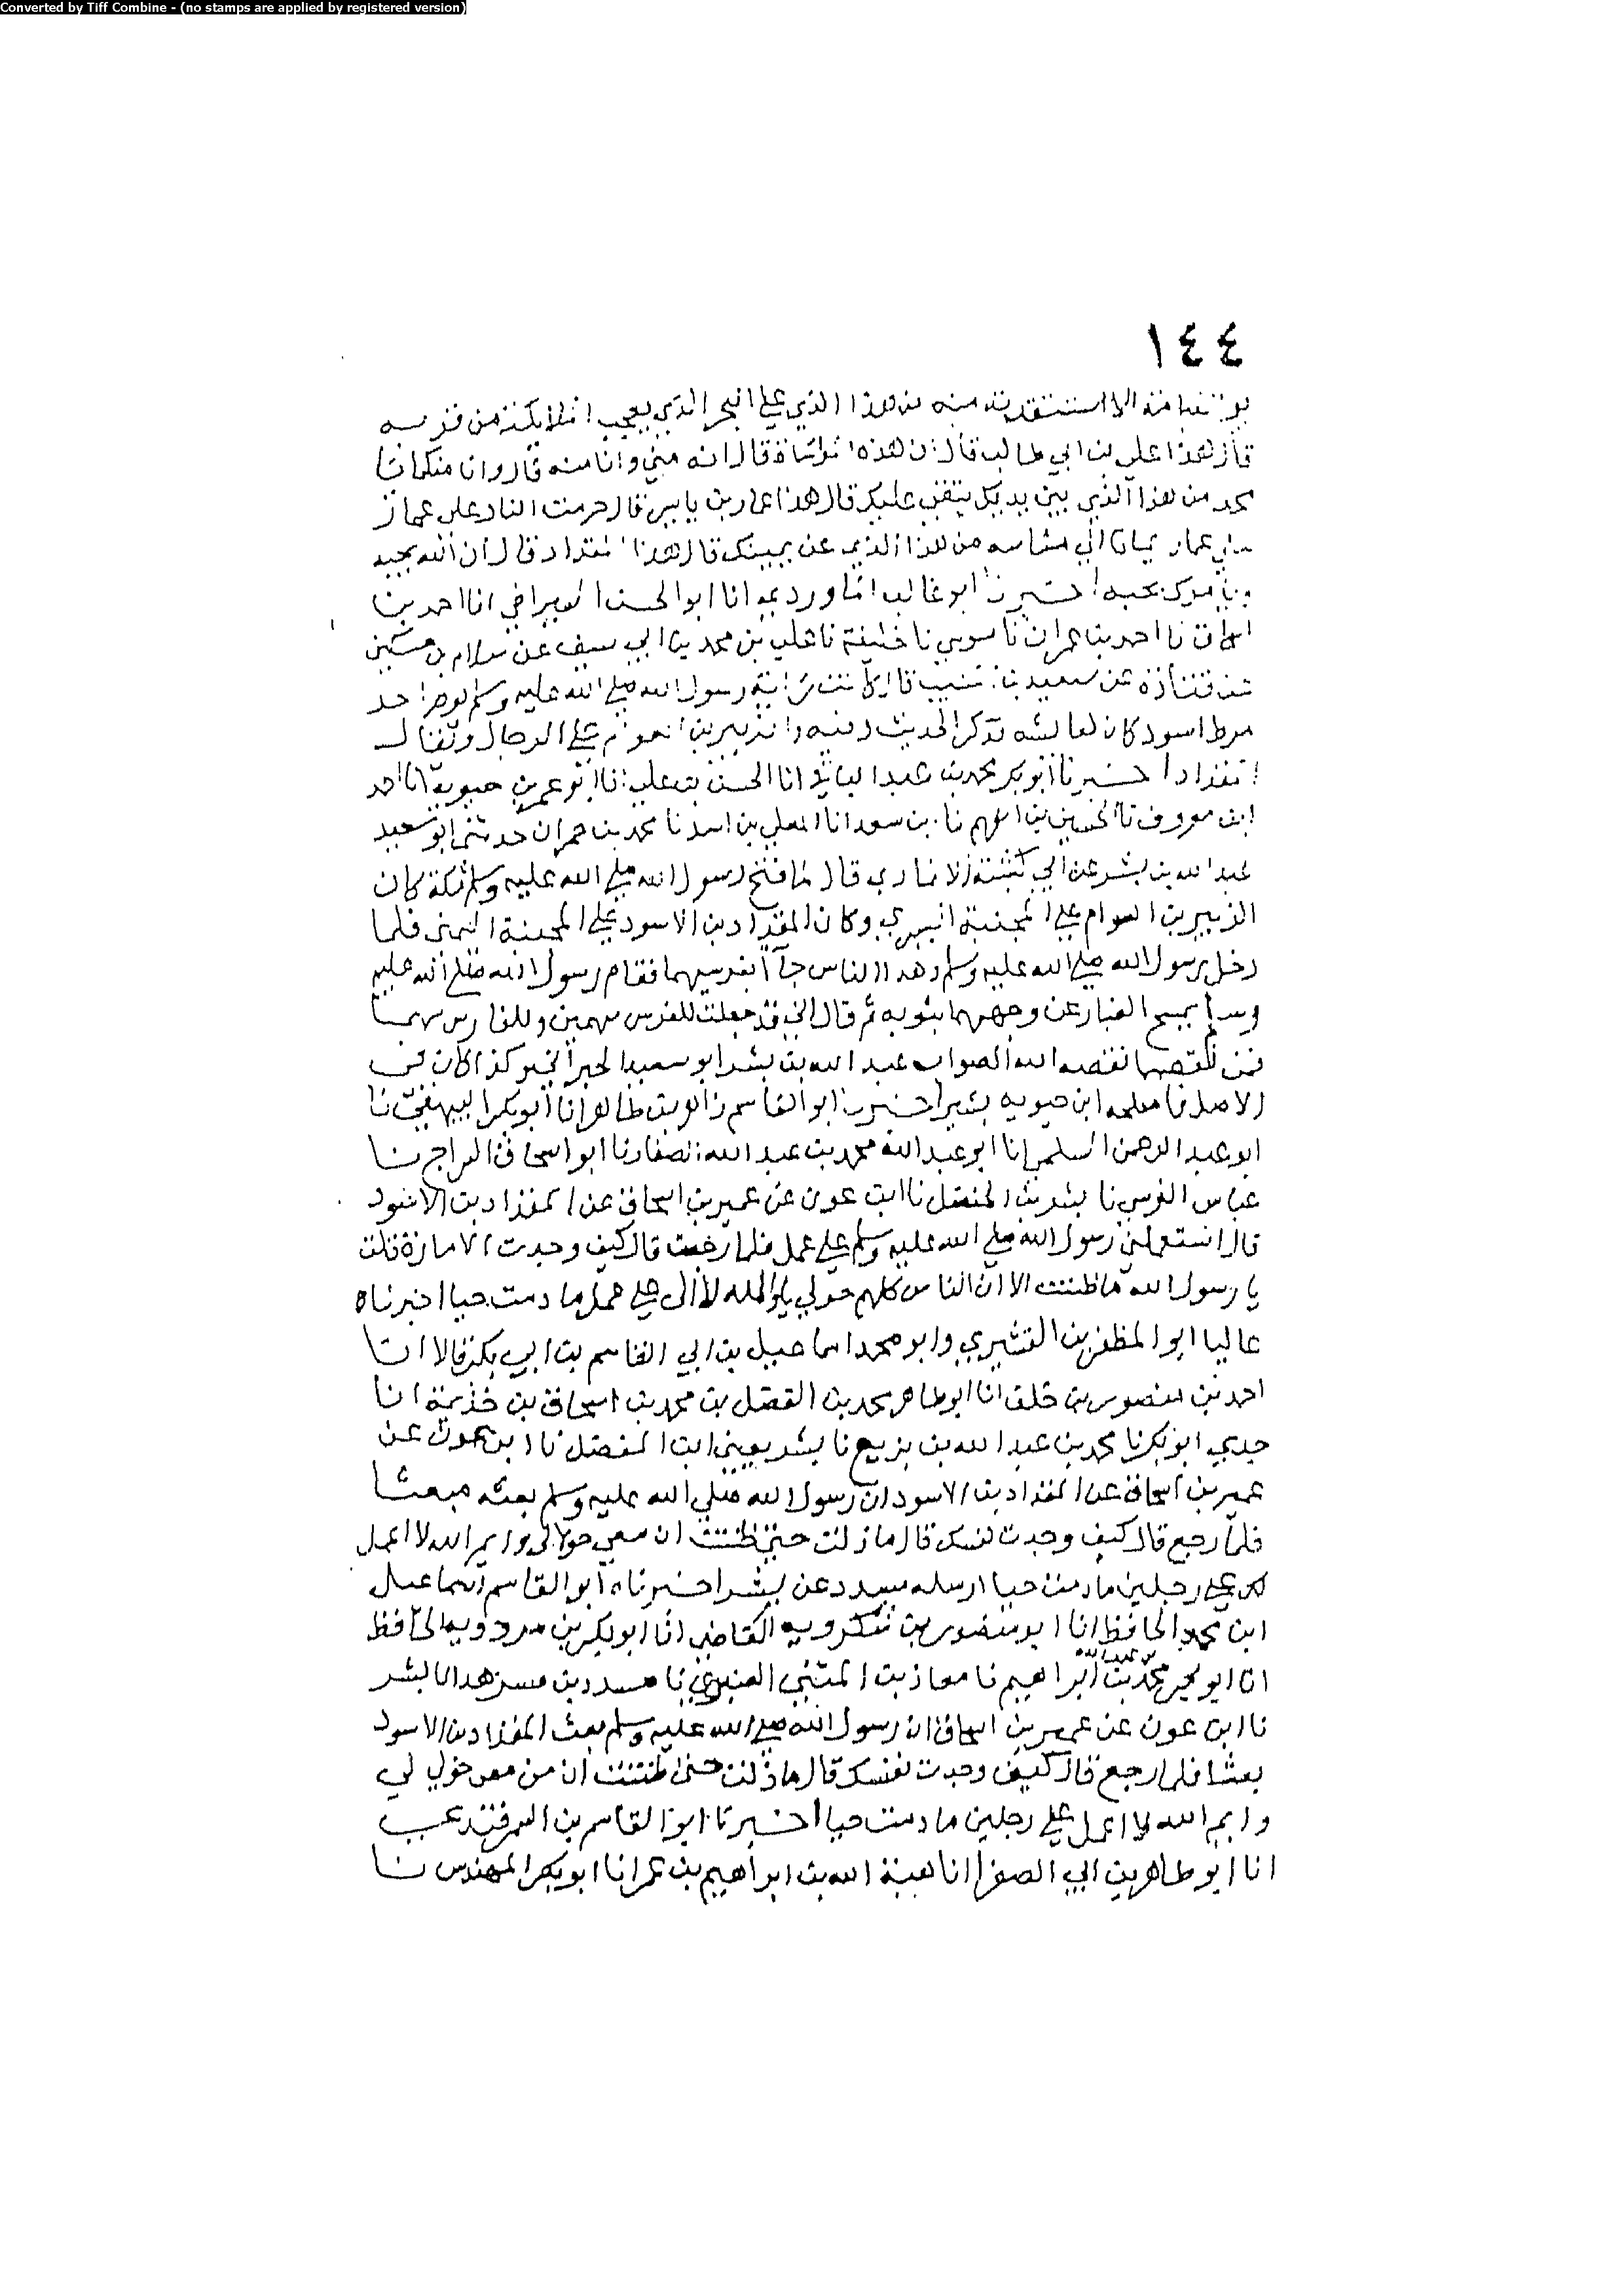 Converted by Tiff Combine - (no stamps are applied by registered version)
١٤٤
يوم القيامة الا استنقذته منه من هذا الذي على الحجر الذي يعجب الملائكة من فرسه
قال هذا علي بن ابي طالب قال ان هذه المواساة قال انه مني وانا منه قال وانا منكما يا
محمد من هذا الذي بين يديك يتقي عليك قال هذا عمار بن ياسر قال حرمت النار على عمار
ملئ عمار ايمانا الى مشاشه من هذا الذي عن يمينك قال هذا المقداد قال ان الله يحبه
ويأمرك بحبه اخبرنا ابو غالب الماوردي انا ابو الحسن السيرافي انا احمد بن
اسحاق نا احمد بن عمران نا موسى نا خليفة نا علي بن محمد بن ابي سيف عن سلام بن مسكين
عن قتادة عن سعيد بن المسيب قال كانت راية رسول الله صلى الله عليه وسلم يوم احد
مرط اسود كان لعائشة وذكر الحديث وفيه والزبير بن العوام على الرجال ويقال
المقداد اخبرنا ابو بكر محمد بن عبد الباقي انا الحسن بن علي انا ابو عمر بن حيوية انا احمد
ابن معروف نا الحسين بن الفهم نا بن سعد انا المعلى بن اسد نا محمد بن حمران حدثني ابو سعيد
عبد الله بن بشر عن ابي كبشة الانماري قال لما فتح رسول الله صلى الله عليه وسلم مكة كان
الزبير بن العوام على المجنبة اليسرى وكان المقداد بن الاسود على المجنبة اليمنى فلما
دخل رسول الله صلى الله عليه وسلم وهدا الناس جاآ بفرسيهما فقام رسول الله صلى الله عليه
وسلم يمسح الغبار عن وجههما بثوبه ثم قال اني قد جعلت للفرس سهمين وللفارس سهما
فمن نقصهما نقصه الله الصواب عبد الله بن بشر ابو سعيد الحبراني وكذا كان في
الاصل فاصلحه ابن حيويه بشير اخبرنا ابو القاسم زاهر بن طاهر انا ابو بكر البيهقي نا
ابو عبد الرحمن السلمي انا ابو عبد الله محمد بن عبد الله الصفار نا ابو اسحاق السراج نا
عباس النرسي نا بشر بن المفضل نا ابن عون عن عمير بن اسحاق عن المقداد بن الاسود
قال استعملني رسول الله صلى الله عليه وسلم على عمل فلما رجعت قال كيف وجدت الامارة قلت
يا رسول الله ما ظننت الا ان الناس كلهم خولي والله لا الي على عمل ما دمت حيا اخبرناه
عاليا ابو المظفر بن القشيري وابو محمد اسماعيل بن ابي القاسم بن ابي بكر قالا انا
احمد بن منصور بن خلف انا ابو طاهر محمد بن الفضل بن محمد بن اسحاق بن خذيمة انا
جدي ابو بكر نا محمد بن عبد الله بن بزيع نا بشر يعني ابن المفضل نا ابن عون عن
عمير بن اسحاق عن المقداد بن الاسود ان رسول الله صلى الله عليه وسلم بعثه مبعثا
فلما رجع قال كيف وجدت نفسك قال ما زلت حتى ظننت ان معي خولا لي وايم الله لا اعمل
على رجلين ما دمت حيا ارسله مسدد عن بشر اخبرناه ابو القاسم اسماعيل
ابن محمد الحافظ انا ابو منصور بن شكرويه القاضي انا ابو بكر بن مردويه الحافظ
انا ابو بحر محمد بن عبد الله بن ابراهيم نا معاذ بن المثنى العنبري نا مسدد بن مسرهد نا بشر
نا ابن عون عن عمير بن اسحاق ان رسول الله صلى الله عليه وسلم بعث المقداد بن الاسود
بعثا فلما رجع قال كيف وجدت نفسك قال ما زلت حتى ظننت ان من معي خولي لي
وايم الله لا اعمل على رجلين ما دمت حيا اخبرنا ابو القاسم بن السمرقندي
انا ابو طاهر بن ابي الصقر انا هبة الله بن ابراهيم بن عمر انا ابو بكر المهندس نا